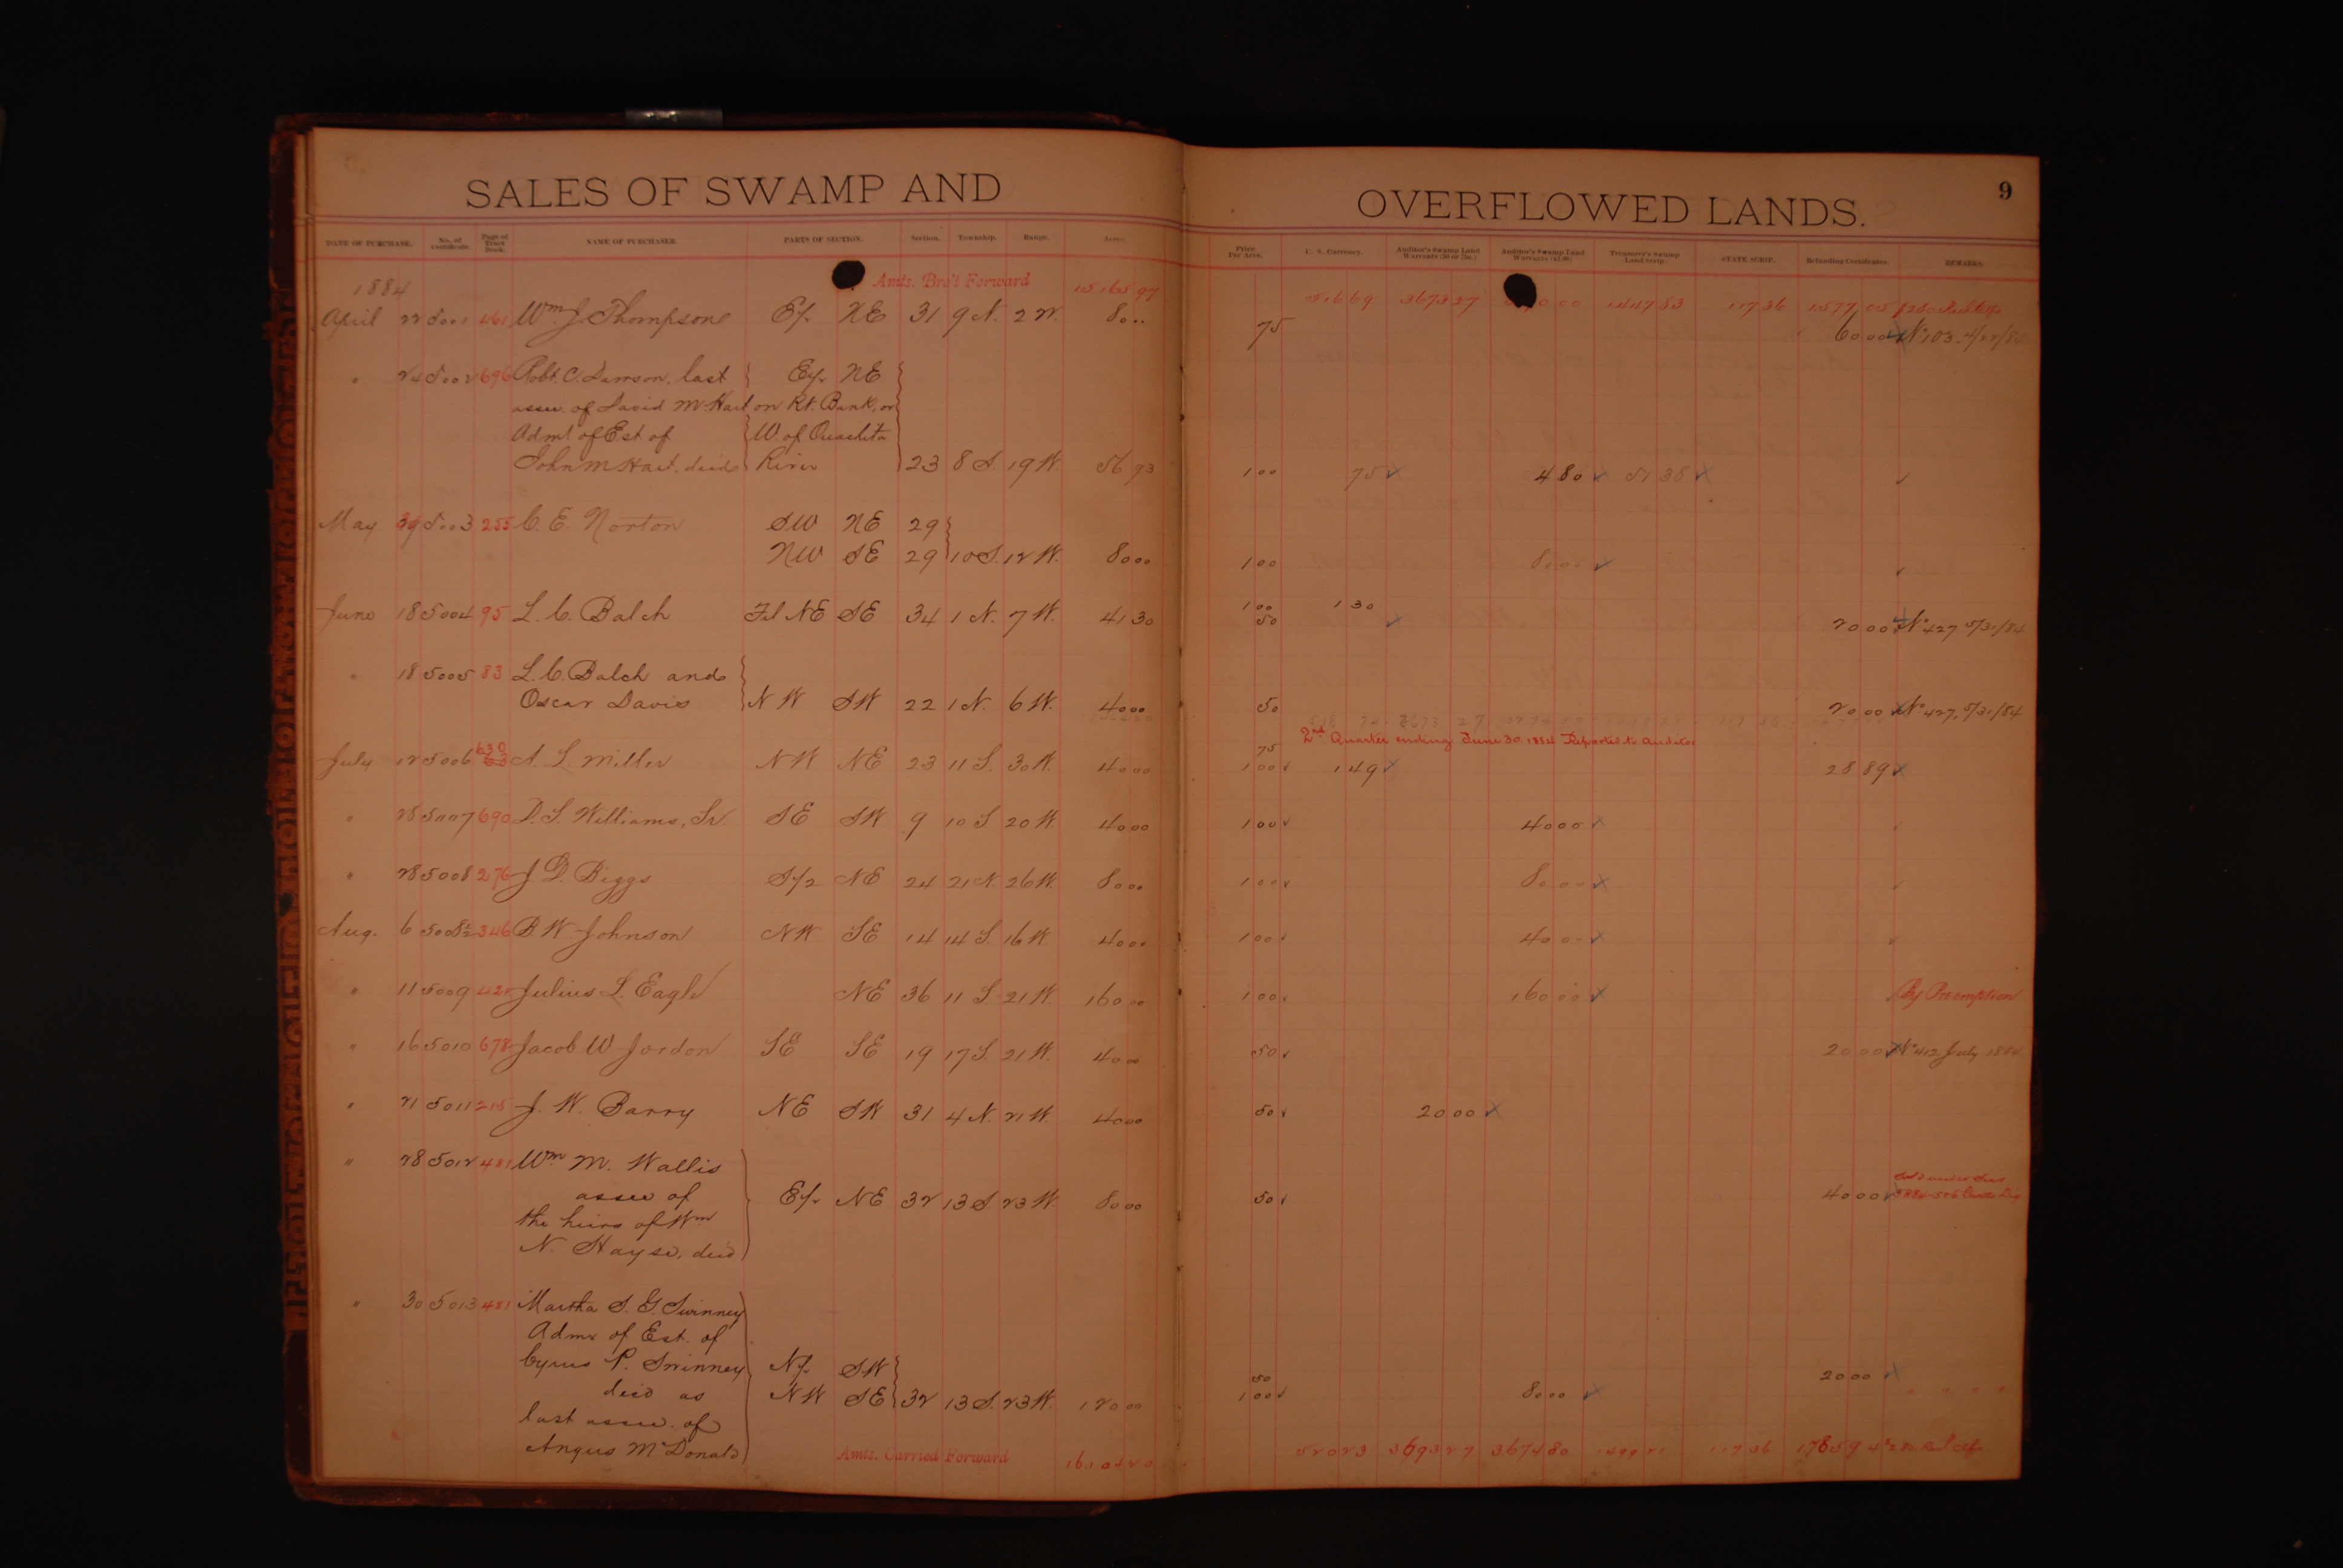 SALES OF SWAMP AND OVERFLOWED LANDS. 9
DATE OF PURCHASE. No. of Certificate. Page of Tract Book. NAME OF PURCHASER. PARTS OF SECTION. Section. Township. Range. Acres. Price Per Acre. U. S. Currency. Auditor's Swamp Land Warrants (50 or 75c.) Auditor's Swamp Land Warrants ($1.00) Treasurer's Swamp Land Scrip. STATE SCRIP. Refunding Certificates. REMARKS.
Amts. Bro't Forward 15165 97 516 69 3673 27 1447 83 117 36 1577 05
1884
April 22 5001 461 Wm. J. Thompson E/2 NE 31 9 N. 2 W. 80 00 75 60 00 No 103. 4/22/84
" 24 5002 696 Robt. C. Dawson, last E/2 NE
assee. of David McHart on Rt. Bank, or
Adml of Est of W. of Ouachita
John McHart, decd River 23 8 S. 19 W. 56 93 1 00 75 4 80 51 38
May 30 5003 255 C. E. Norton SW NE 29
NW SE 29 10 S. 12 W. 80 00 1 00 80 00
June 18 5004 95 L. C. Balch Frl NE SE 34 1 N. 7 W. 41 30 1 00 50 1 30 20 00 No 427 5/31/84
" 18 5005 83 L. C. Balch and
Oscar Davis NW SW 22 1 N. 6 W. 40 00 50 20 00 No 427, 5/31/84
2nd Quarter ending June 30 1884 Reported to Auditor
July 12 5006 630 A. L. Miller NW NE 23 11 S. 30 W. 40 00 75 1 00 1 49 28 89
" 25 5007 690 D. S. Williams, Sr. SE SW 9 10 S 20 W. 40 00 1 00 40 00
" 28 5008 276 J. D. Biggs S/2 NE 24 21 N. 26 W. 80 00 1 00 80 00
Aug. 6 5008½ 346 B W Johnson NW SE 14 14 S. 16 W. 40 00 1 00 40 00
" 11 5009 422 Julius L. Eagle NE 36 11 S 21 W. 160 00 1 00 160 00 By Preemption
" 16 5010 678 Jacob W Jordon SE SE 19 17 S. 21 W. 40 00 50 20 00 No 412 July 1884
" 21 5011 215 J. W. Barry NE SW 31 4 N. 21 W. 40 00 50 20 00
" 28 5012 481 Wm. M. Wallis
assee of E/2 NE 32 13 S. 23 W. 80 00 50 40 00
the heirs of Wm
N. Hayse, decd
" 30 5013 481 Martha S. G. Swinney
Admx of Est. of
Cyrus P. Swinney N/2 SW 50 20 00
decd as NW SE 32 13 S. 23 W. 120 00 1 00 80 00 " " " "
last assee. of
Angus McDonald
Amts. Carried Forward 16,104 20 520 23 3693 27 3674 80 1499 21 117 36